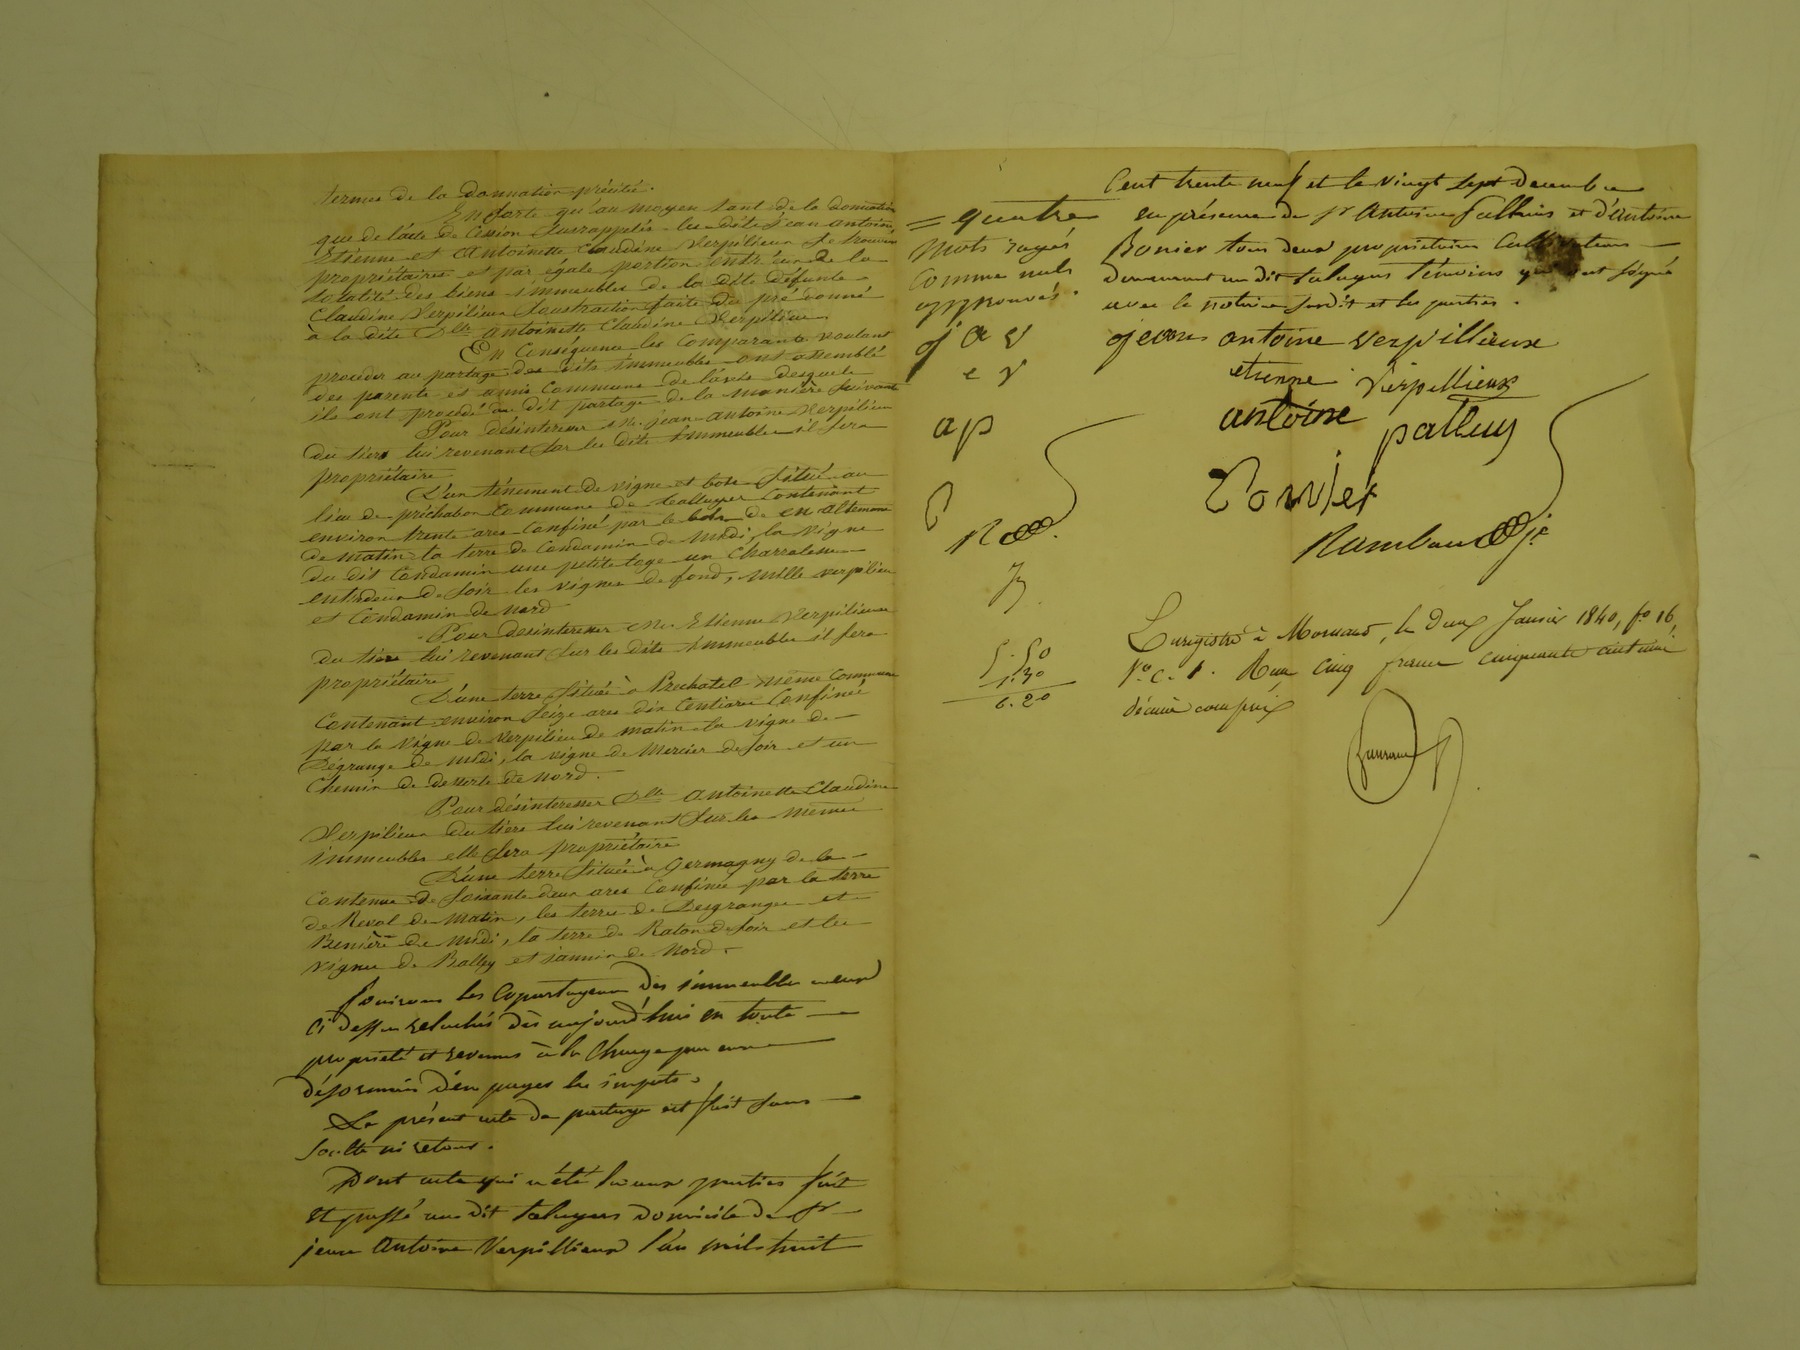 termes de la donnation précitée.
En sorte qu'au moyen tant de la donnation
que de l'acte de Cession Susrappelés les dits Jean antoine,
Etienne et Antoinette Claudine Verpilieux se trouvent
propriétaires et par égale portion entr'eux de la
totalité des biens immeubles de la dite défunte
Claudine Verpilieux Soustraction faite du pré donné
à la dite Dlle antoinette Claudine Verpilieux
En Conséquence les Comparants voulant
procéder au partage des dits immeubles ont assemblé
des parents et amis Communs de l'avis desquels
ils ont procédé au dit partage de la manière Suivante
Pour désinteresser Mr. jean antoine Verpilieux
du tiers lui revenant sur les dits immeubles il sera
propriétaire
D'un tènement de vigne et bois Situé au
lieu de prichabon Commune de talluyer Contenant
environ trente ares Confiné par le bois de
de matin la terre de Condamin de Midi, la Vigne
du dit Condamin une petite loge un Charrolous
entredeux de Soir les vignes de fond, Mille verpilieu
et Condamin de nord
Pour desinteresser Mr Etienne Verpilieux
du tiers lui revenant Sur les dits immeubles il sera
propriétaire
D'une terre Située à Prichatel même Commune
Contenant environ Seize ares dix Centiares Confinée
par la vigne de Verpilieu de matin la vigne de
Dégrange de Midi, la vigne de Mercier de Soir et un
Chemin de desserte de Nord.
Pour désinteresser Dlle antoinette Claudine
Verpilieux du tiers lui revenant Sur les mêmes
immeubles elle Sera propriétaire
D'une terre Située à Germagny de la
Contenue de Soixante deux ares Confinée par la terre
de Revol de Matin, les terres de Desgranges et
Benière de Midi, la terre de Ratou de Soir et les
vignes de Balley et jannin de Nord.
Jouirons les Copartageans des immeubles
Ci dessus relachés dès aujourd'hui en toute
propriété et revenus à la Charge pour eux
désormais d'en payer les impots.
Le présent acte de partage est fait sans
soulte ni retour.
Dont acte qui a été lu aux parties fait
et passé au dit taluyers domicile de Sr
jean Antoine Verpillieux l'an mil huit
Cent trente neuf et le vingt Sept Decembre
en présence de Sr Antoine et d'antoine
Bonier tous deux propriétaires Cultivateurs
demeurant au dit taluyers témoins qui ont signé
avec le notaire susdit et les parties.
= quatre
Mots rayés
Comme nuls
approuvés.
j a v
e v
a p
jean antoine verpillieux
etienne Verpellieux
antoine
Bonier
Rambaud
5.50
6.20
Enregistré à Mornant, le Deux Janvier 1840, fo 16,
Vo C. 1. Reçu Cinq francs cinquante centimes
décime compris